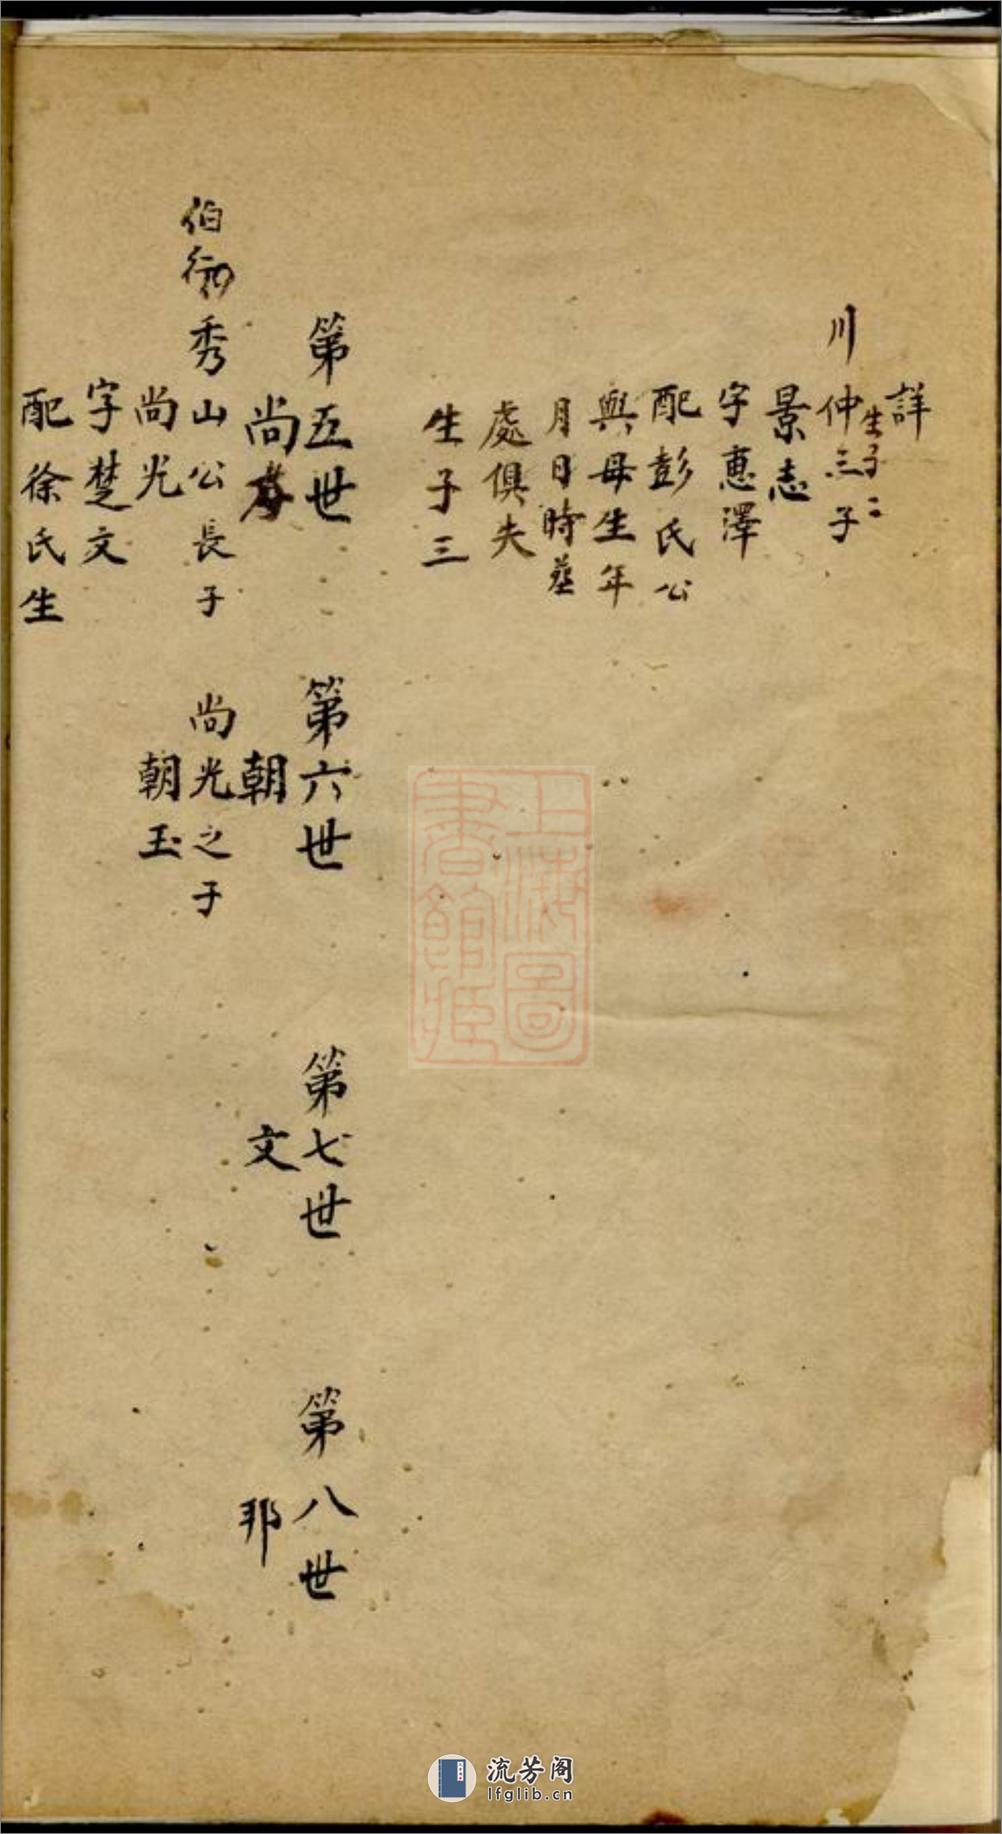 詳
生子二
川仲三子
景志
字惠澤
配彭氏公
與母生年
月日時葬
處俱失
生子三
第五世
尚
第六世
朝
第七世
文
第八世
邦
伯衍秀山公長子
尚光之子
尚光
朝玉
字楚文
配徐氏生
上海圖書館藏
流芳阁
lfglib.cn